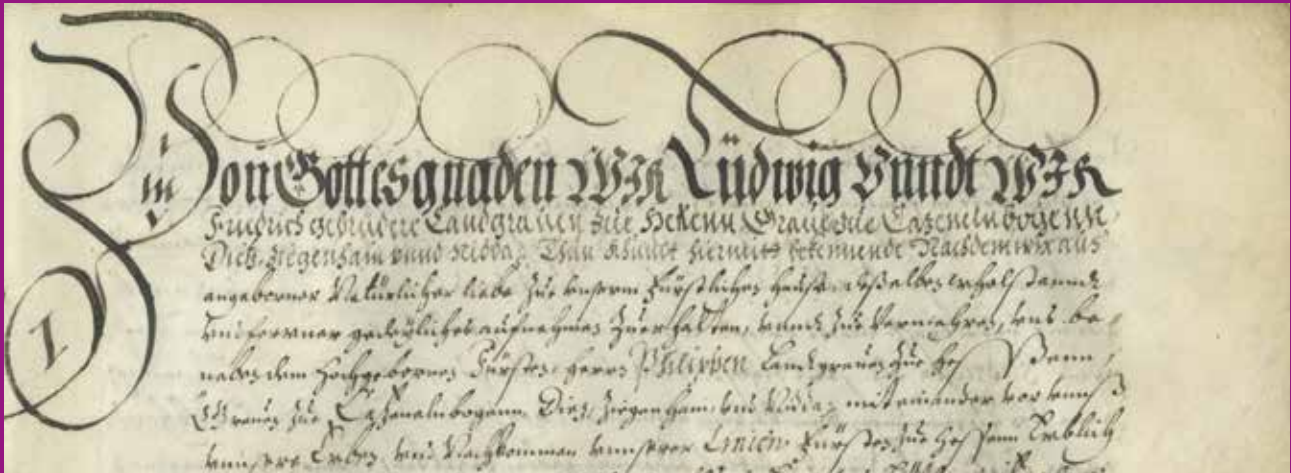 Von Gottes gnaden WIR Ludwig Vnndt WIR
Friedrich gebrüdere Landgrauen zue Hessenn, Graue zue Catzenelnbogenn,
Dietz, Ziegenhain vnnd Nidda, Thun khundt hiermitt bekennende Nachdem wir aus
angeborner Naturlicher liebe zue vnserm Fürstlichen hause, desselben
vnd ferrner gedeyliches aufnehmen zuerhalten, vnnd zue Vermehren, vns be
nebens dem Hochgebornen Fürsten, herrn Philipsen Landgrauen zue Hessenn,
Grauen zue Catzenelnbogenn, Dietz, Ziegenhain vnd Nidda, mit einander vor vnnß
vnnsere Erben vnd Nachkommen vnnserer Linien Fürsten zue Hessenn Erblich
1